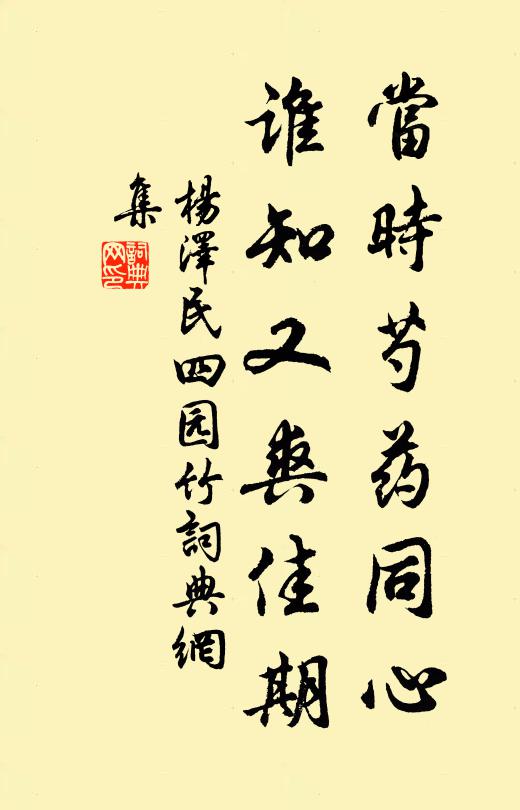 當時芍药同心
誰知又爽佳期
楊澤民四园竹詞典網
集
詞典
网印